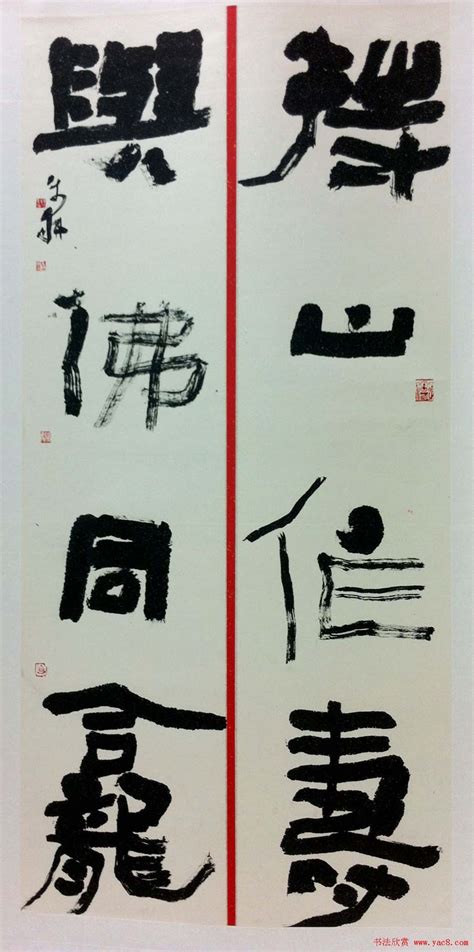 持山作壽
與佛同龕
书法欣赏 www.yac8.com